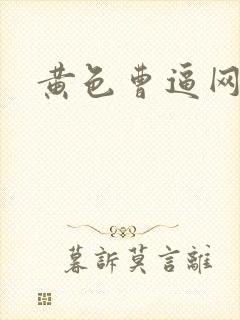 黄色曹逼网
暮訴莫言離